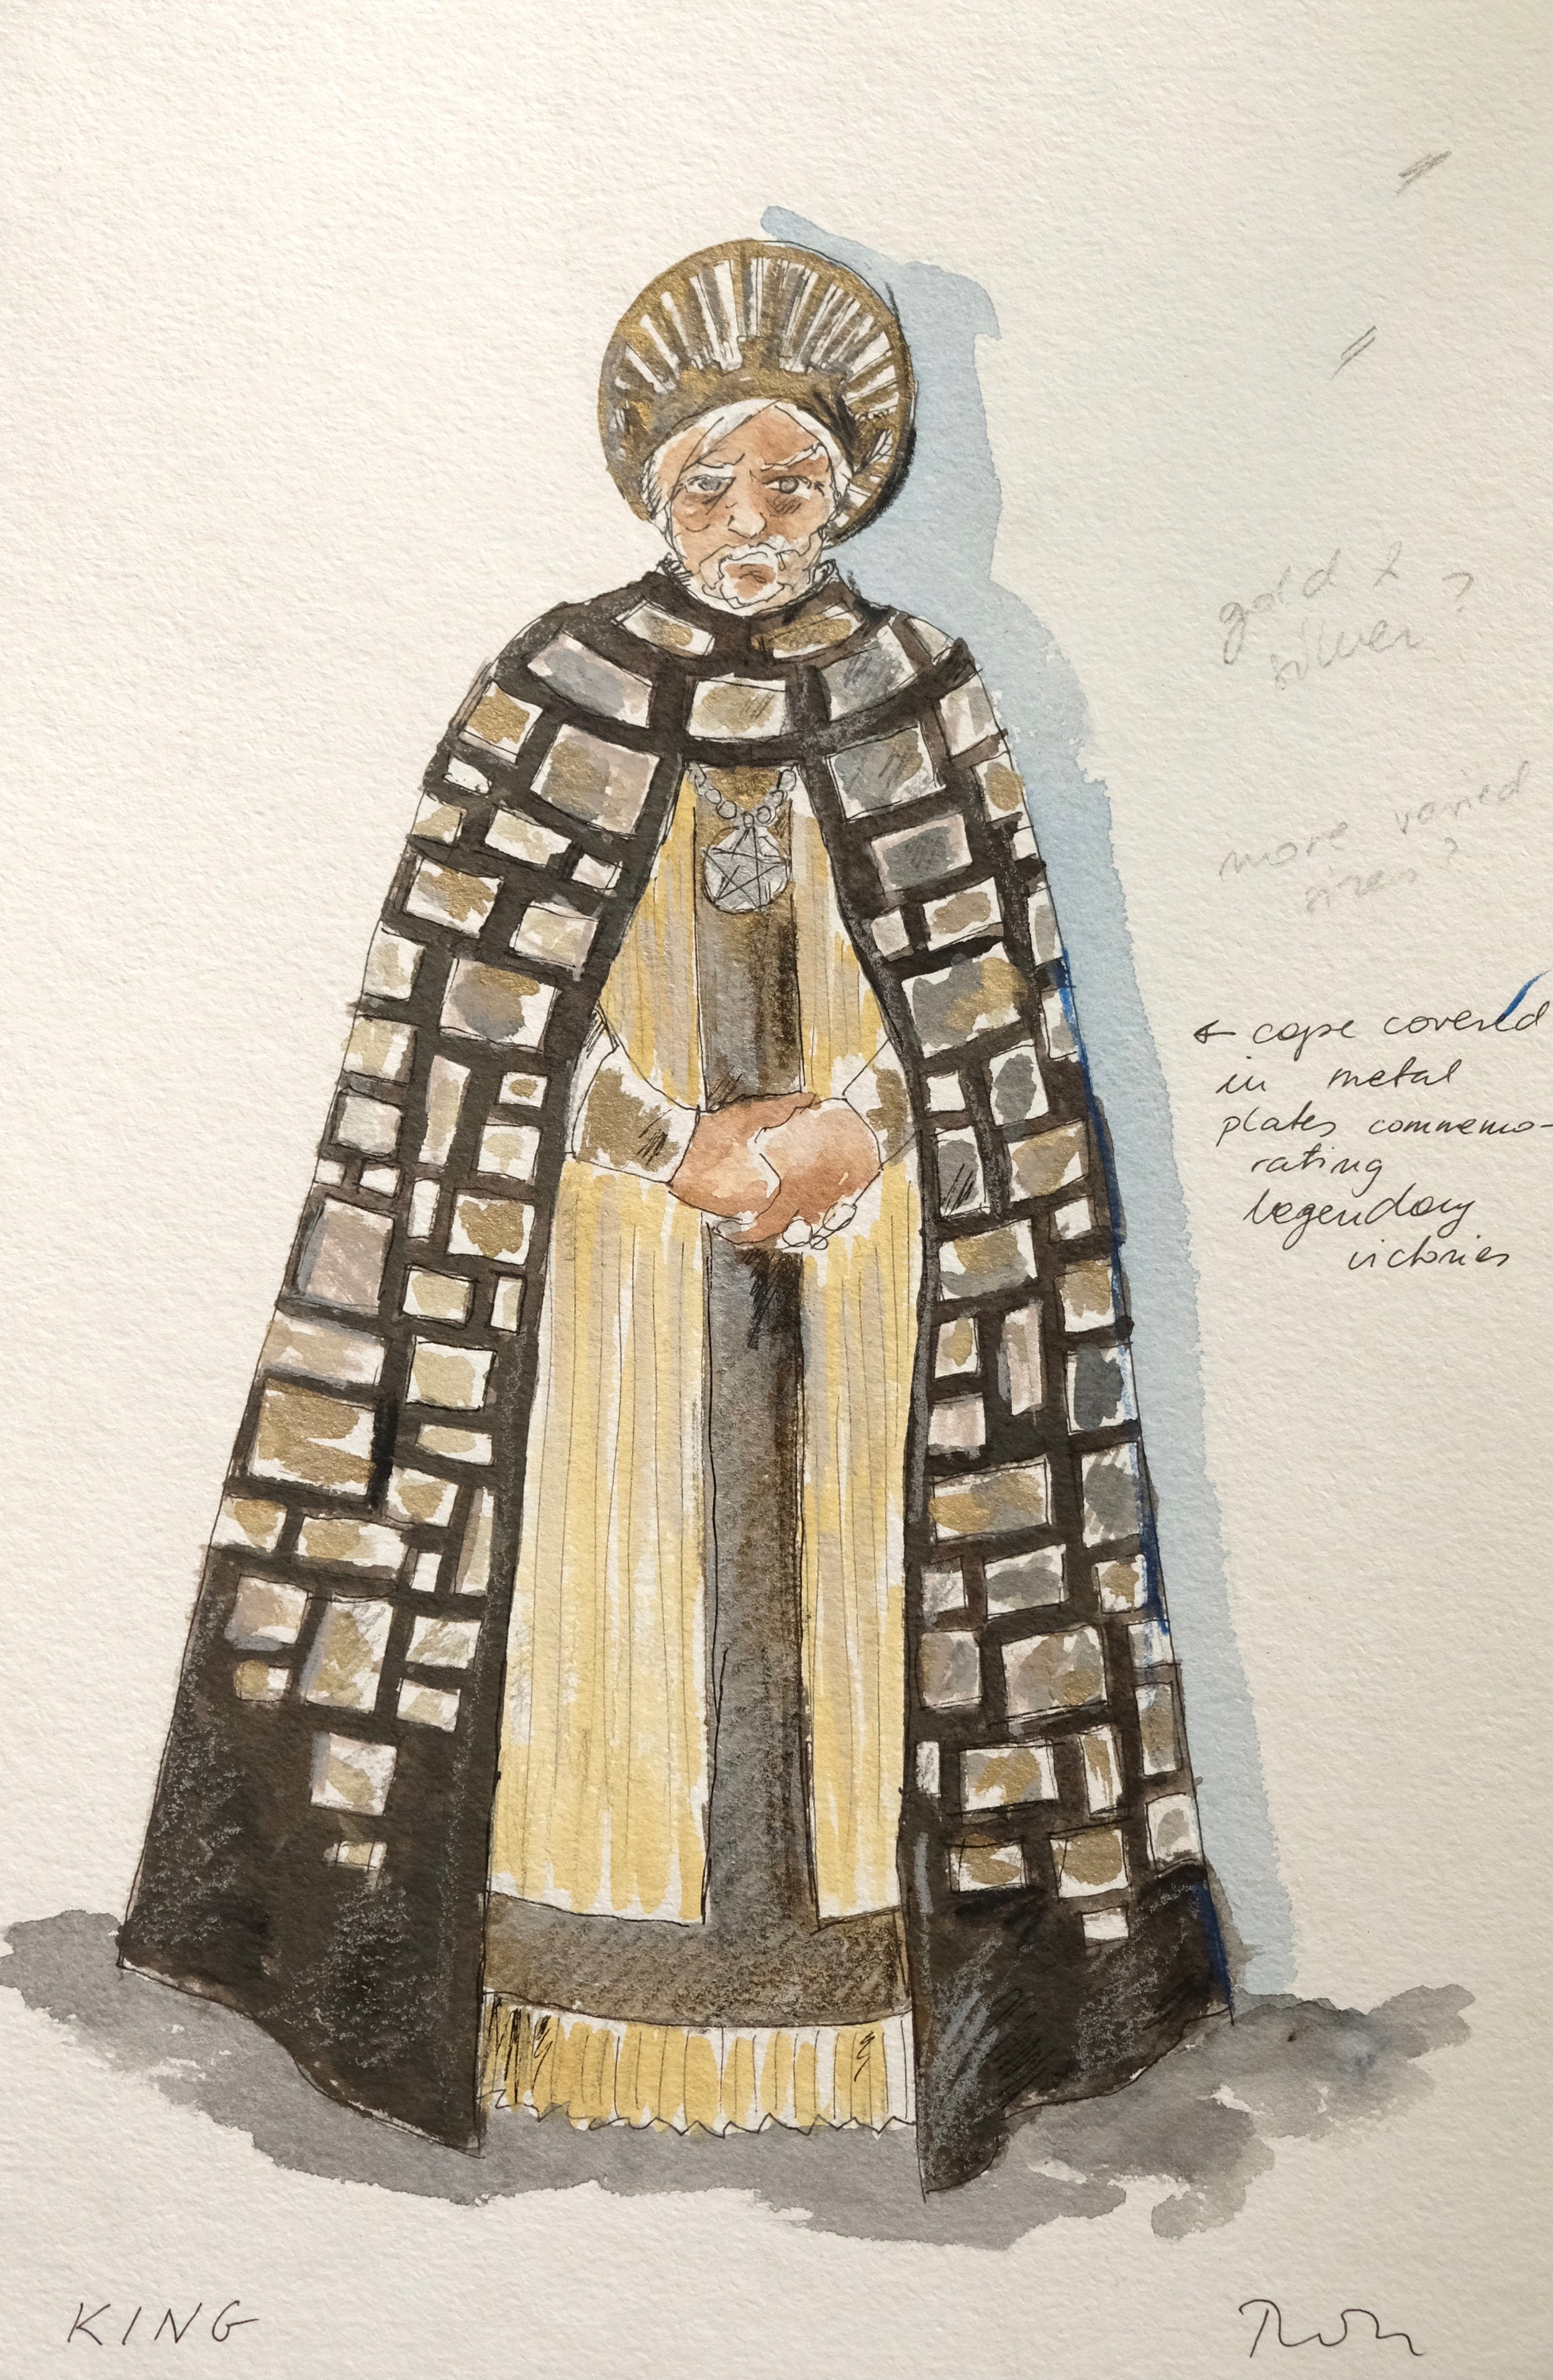 gold &
silver ?
more varied
sizes ?
← cope covered
in metal
plates commemo-
rating
legendary
victories
KING